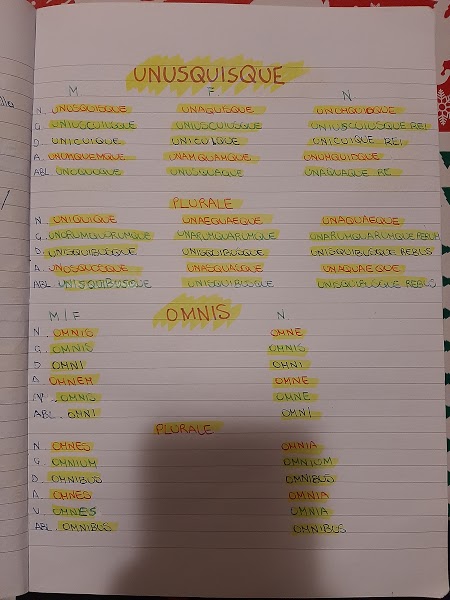 UNUSQUISQUE
M F N
N. UNUSQUISQUE UNAQUISQUE UNUMQUIDQUE
G. UNIUSCUIUSQUE UNIUSCUIUSQUE UNIUSCUIUSQUE REI
D. UNICUIQUE UNICUIQUE UNICUIQUE REI
A. UNUMQUEMQUE UNAMQUAMQUE UNUMQUIDQUE
ABL UNOQUOQUE UNAQUAQUE UNAQUAQUE RE
PLURALE
N. UNIQUIQUE UNAEQUAEQUE UNAQUAEQUE
G. UNORUMQUORUMQUE UNARUMQUARUMQUE UNARUMQUARUMQUE RERUM
D. UNISQUIBUSQUE UNISQUIBUSQUE UNISQUIBUSQUE REBUS
A. UNOSQUOSQUE UNASQUASQUE UNAQUAEQUE
ABL UNISQUIBUSQUE UNISQUIBUSQUE UNISQUIBUSQUE REBUS
M/F OMNIS N.
N. OMNIS OMNE
G. OMNIS OMNIS
D OMNI OMNI
A. OMNEM OMNE
OMNIS OMNE
ABL. OMNI OMNI
PLURALE
N. OMNES OMNIA
G. OMNIUM OMNIUM
D. OMNIBUS OMNIBUS
A. OMNES OMNIA
V. OMNES OMNIA
ABL OMNIBUS OMNIBUS